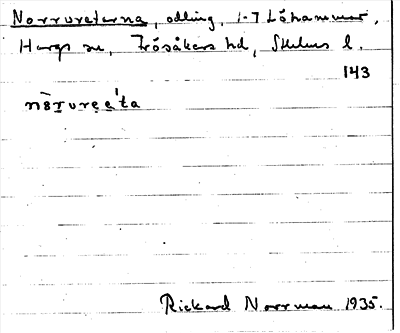 Norruretarna, odling, 1-7 Låhammar,
Hargs sn, Frösåkers hd, Sthlms l.
143
Rickard Norrman 1935.